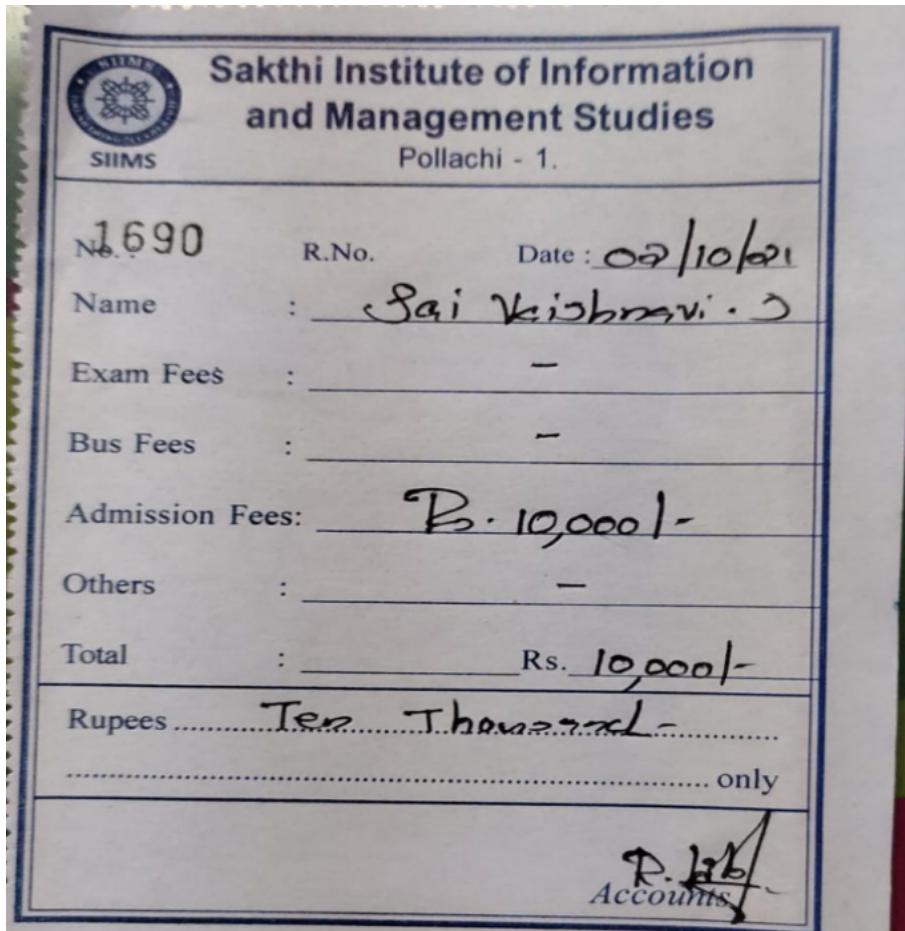 SIIMS
Sakthi Institute of Information
and Management Studies
SIIMS
Pollachi - 1.
No. 1690 R.No. Date : 02/10/21
Name : Sai Vaishnavi . J
Exam Fees : -
Bus Fees : -
Admission Fees: Rs. 10,000/-
Others : -
Total : Rs. 10,000/-
Rupees ........ Ten Thousand - ........
........ only
Accounts